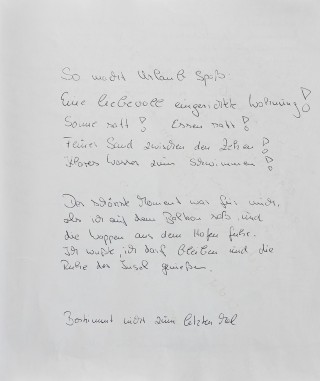 So macht Urlaub Spaß:
Eine liebevoll eingerichtete Wohnung!
Sonne satt! Essen satt!
Feiner Sand zwischen den Zehen!
Klares Wasser zum Schwimmen!
Der schönste Moment war für mich,
als ich auf dem Balkon saß und
die aus dem Hafen fuhr.
Ich wußte, ich darf bleiben und die
Ruhe der Insel genießen.
Bestimmt nicht zum letzten Mal